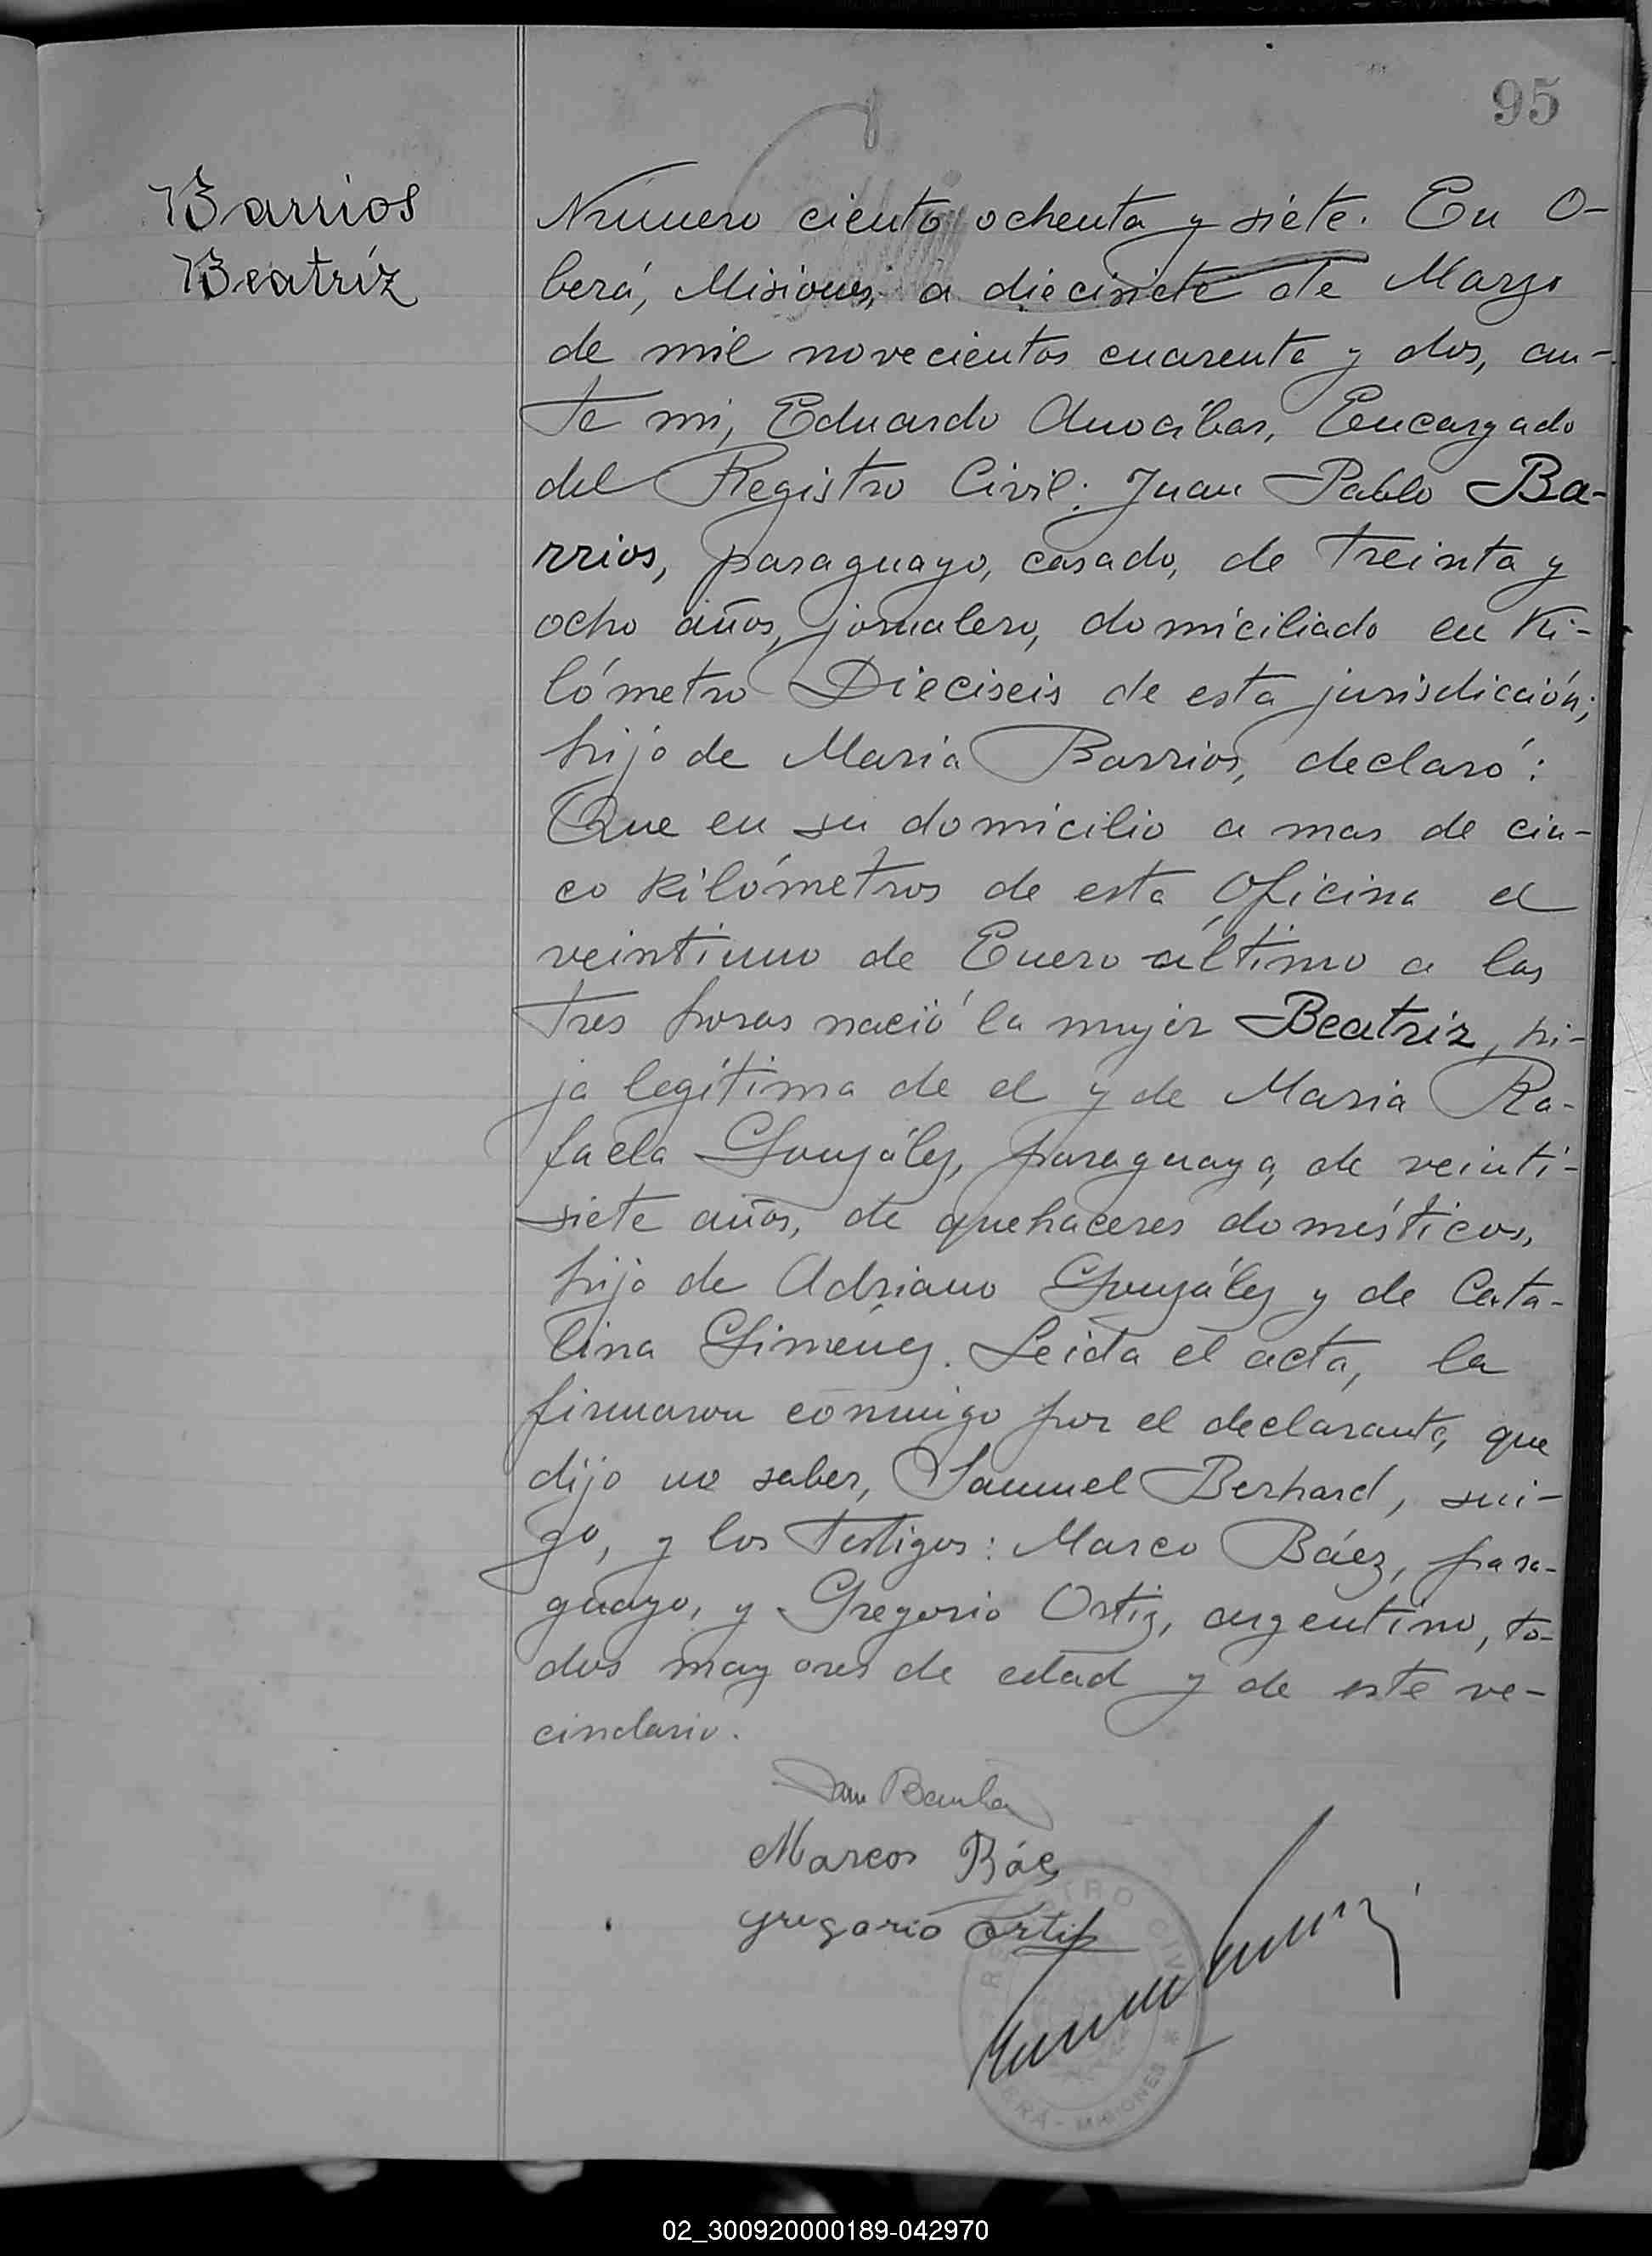 95
Barrios
Beatríz
Número ciento ochenta y siete. En O-
berá, Misiones, a diecisiete de Marzo
de mil novecientos cuarenta y dos, an-
te mi, Eduardo Anocíbar, Encargado
del Registro Civil: Juan Pablo Ba-
rrios, paraguayo, casado, de treinta y
ocho años, jornalero, domiciliado en Ki-
lómetro Dieciseis de esta jurisdicción;
hijo de Maria Barrios, declaró:
Que en su domicilio a mas de cin-
co kilómetros de esta Oficina el
veintiuno de Enero último a las
tres horas nació la mujer Beatriz, hi-
ja legítima de el y de Maria Ra-
faela González, paraguaya, de veinti-
siete años, de quehaceres domésticos,
hija de Adriano González y de Cata-
lina Giménez. Leida el acta, la
firmaron conmigo por el declarante, que
dijo no saber, Samuel Berhard, sui-
zo, y los testigos: Marco Báez, para-
guayo, y Gregorio Ortiz, argentino, to-
dos mayores de edad y de este ve-
cindario.
Marcos Báez
gregorio Ortiz
REGISTRO CIVIL
OBERÁ - MISIONES
02_300920000189-042970